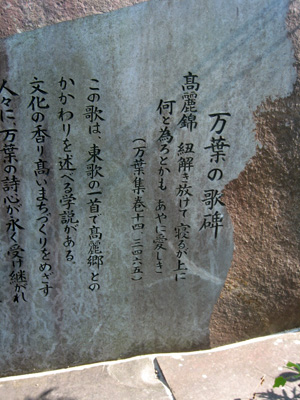 万葉の歌碑
高麗錦 紐解き放けて 寝るが上に
何と為ろとかも あやに愛しき
(万葉集巻十四 三四六五)
この歌は、東歌の一首で高麗郷との
かかわりを述べる学説がある。
文化の香り高いまちづくりをめざす
人々に、万葉の詩心が永く受け継がれ